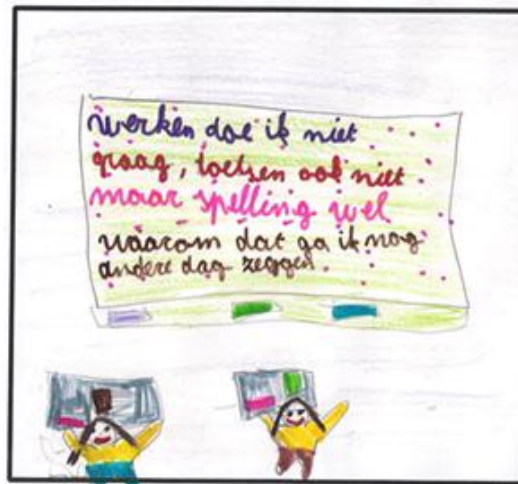 werken doe ik niet
graag, toetsen ook niet
maar spelling wel
waarom dat ga ik nog
andere dag zeggen.